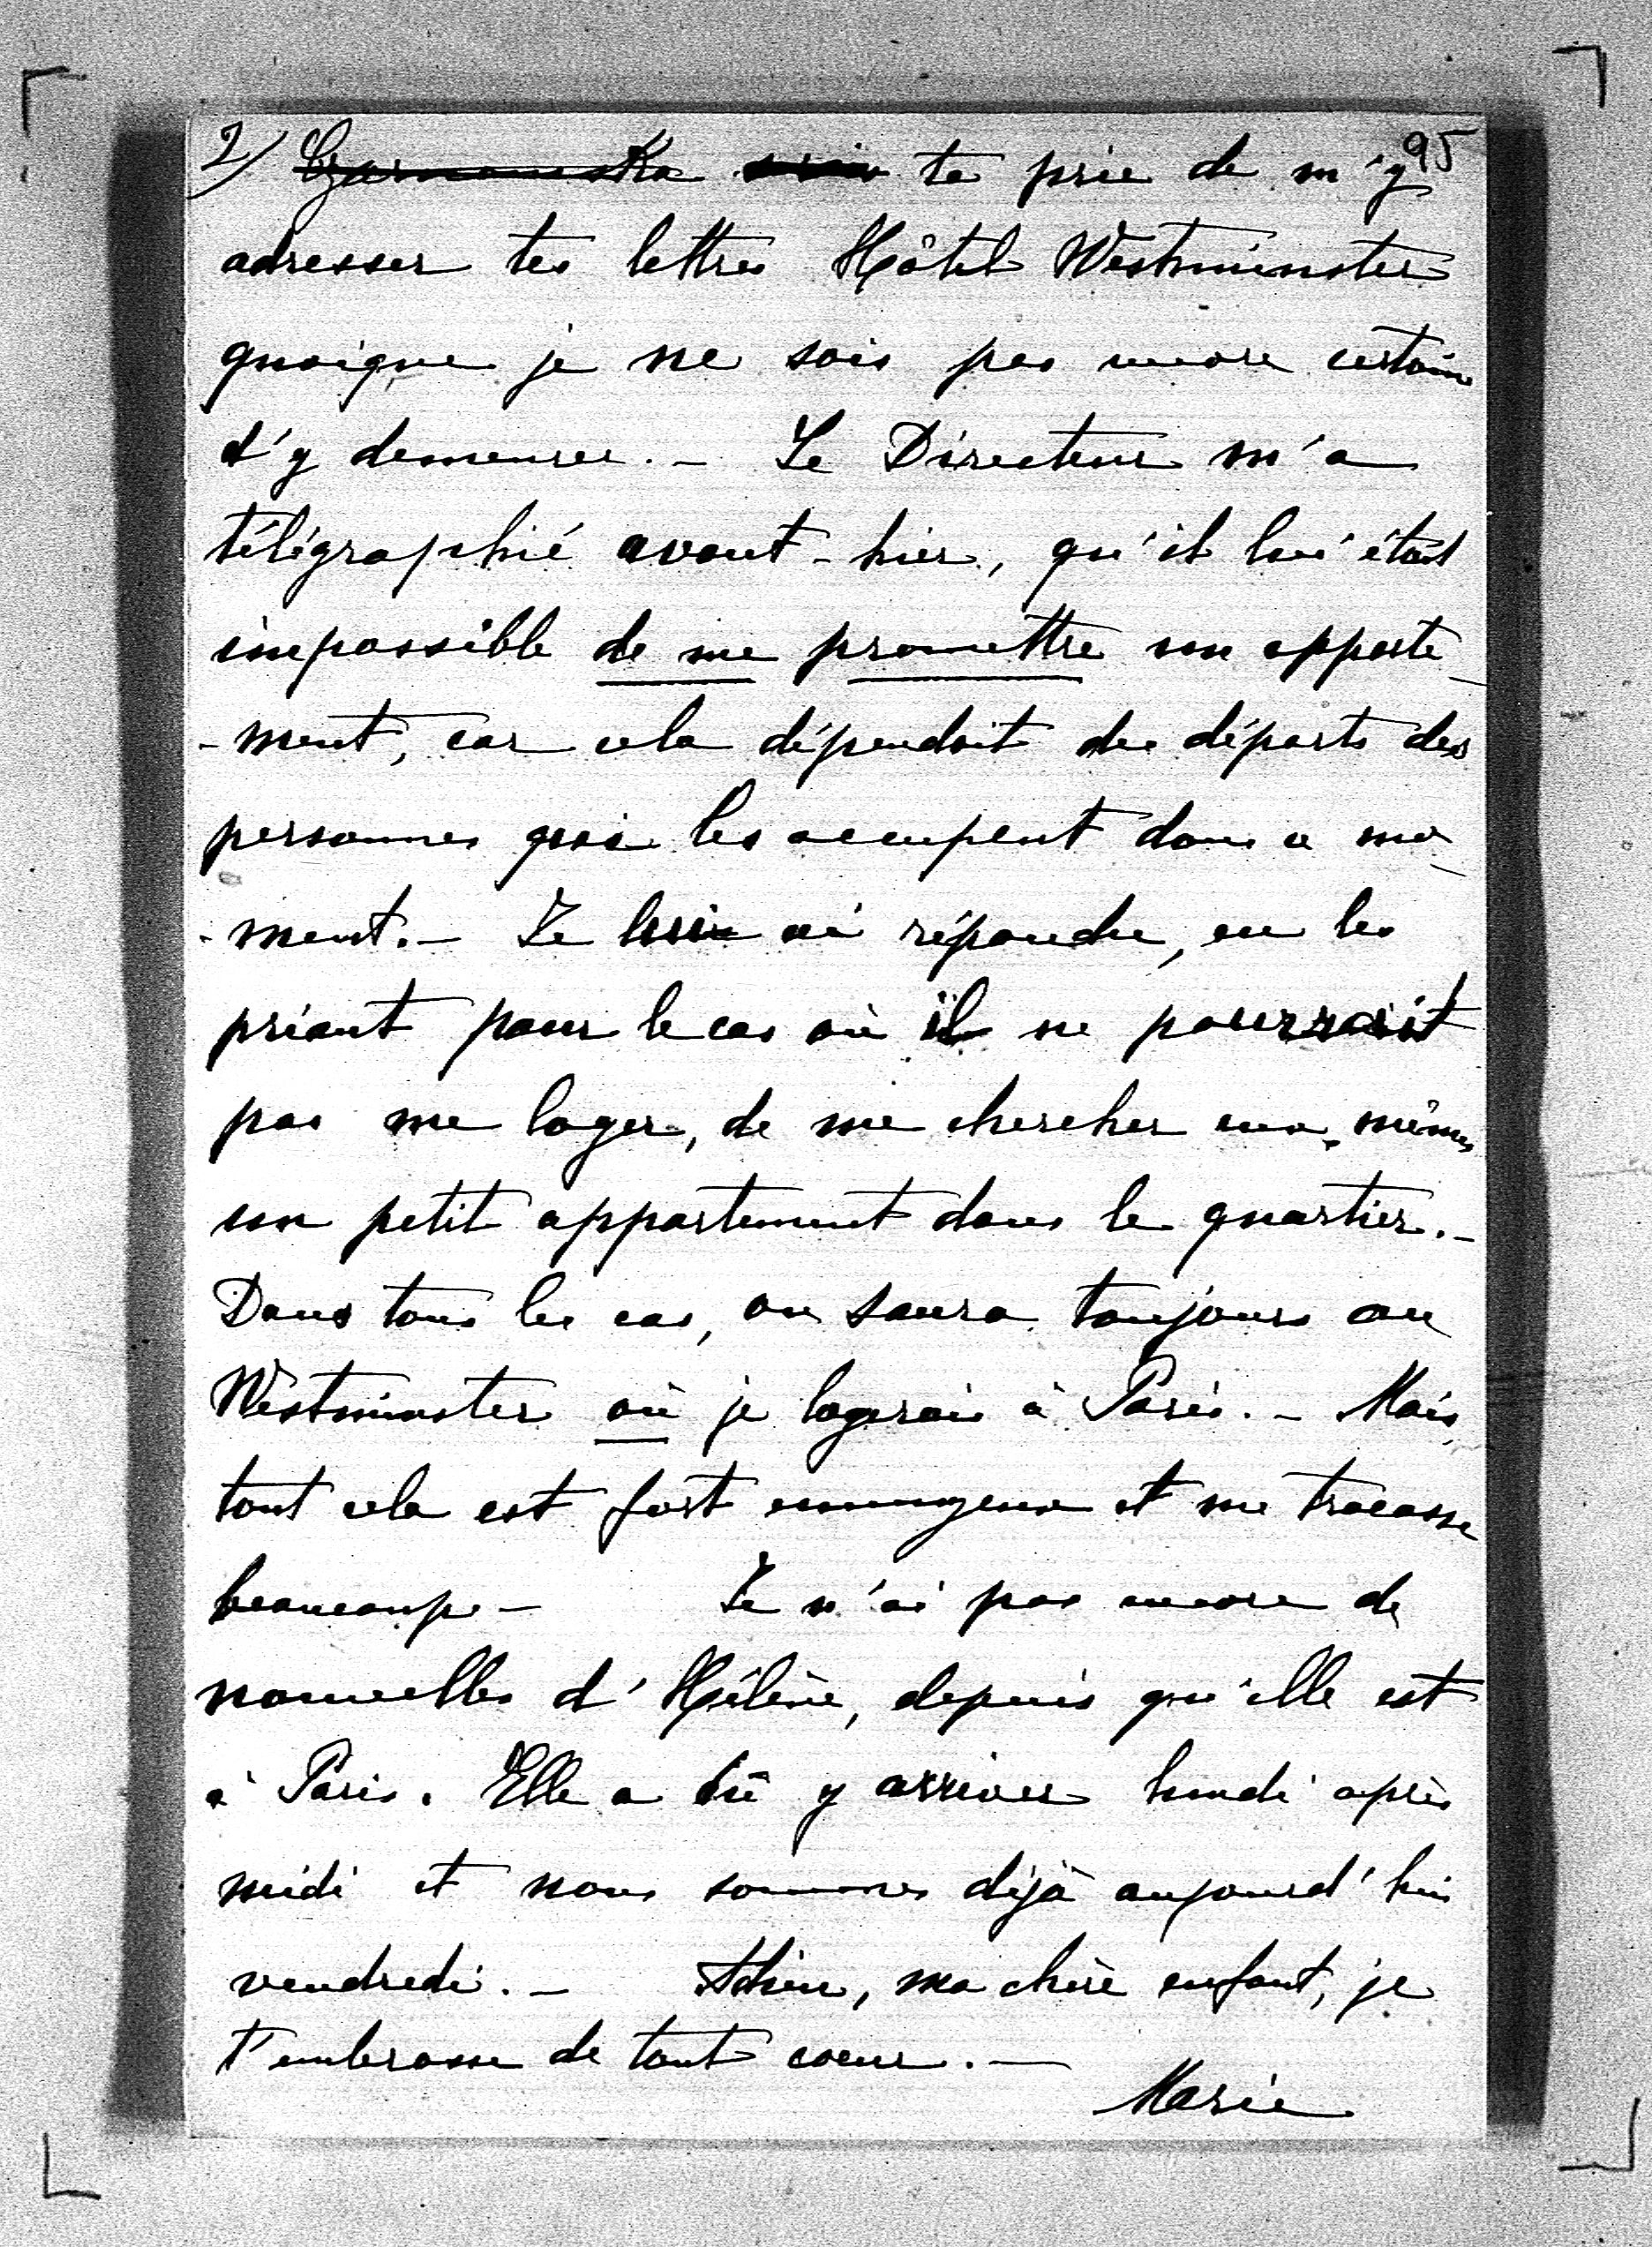 2) Czarnomska te prie de m'y 95
adresser tes lettres Hôtel Westminster
quoique je ne sois pas encore certain
d'y demeurer. — Le Directeur m'a
télégraphié avant-hier, qu'il lui était
impossible de me promettre un apparte-
-ment, car cela dépendait des départs des
personnes qui les occupent dans ce mo-
-ment. — Je lui ai répondu, en les
priant pour le cas où il ne pourrait
pas me loger, de me chercher eux-mêmes
un petit appartement dans le quartier. —
Dans tous les cas, on saura toujours au
Westminster où je logerais à Paris. — Mais
tout cela est fort ennuyeux et me tracasse
beaucoup — Je n'ai pas encore de
nouvelles d'Hélène, depuis qu'elle est
à Paris. Elle a dû y arriver lundi après
midi et nous sommes déjà aujourd'hui
vendredi. — Adieu, ma chère enfant, je
t'embrasse de tout coeur. —
Marie